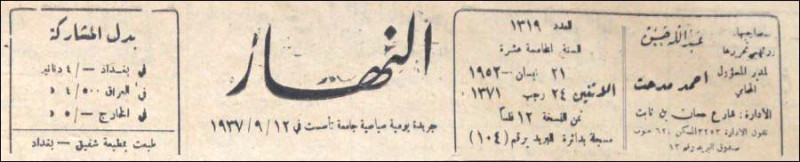 صاحبها
ورئيس تحريرها
عبد الله حسن
المدير المسؤول
المحامي
احمد مدحت
الادارة: شارع حسان بن ثابت
تلفون الادارة ٣٢٥٣ السكن ٦٢٠ صوب
صندوق البريد رقم ١٣
العدد ١٣١٩
السنة الخامسة عشرة
٢١ نيسان - ١٩٥٢
الاثنين ٢٤ رجب ١٣٧١
ثمن النسخة ١٢ فلساً
مسجلة بدائرة البريد برقم (١٠٤)
النهار
جريدة يومية سياسية جامعة تأسست في ١٩٣٧/٩/١٢
بدل المشاركة
في بغداد -/٤ دنانير
في العراق ٤/٥٠٠ د
في الخارج -/٥ د
طبعت بمطبعة شفيق - بغداد